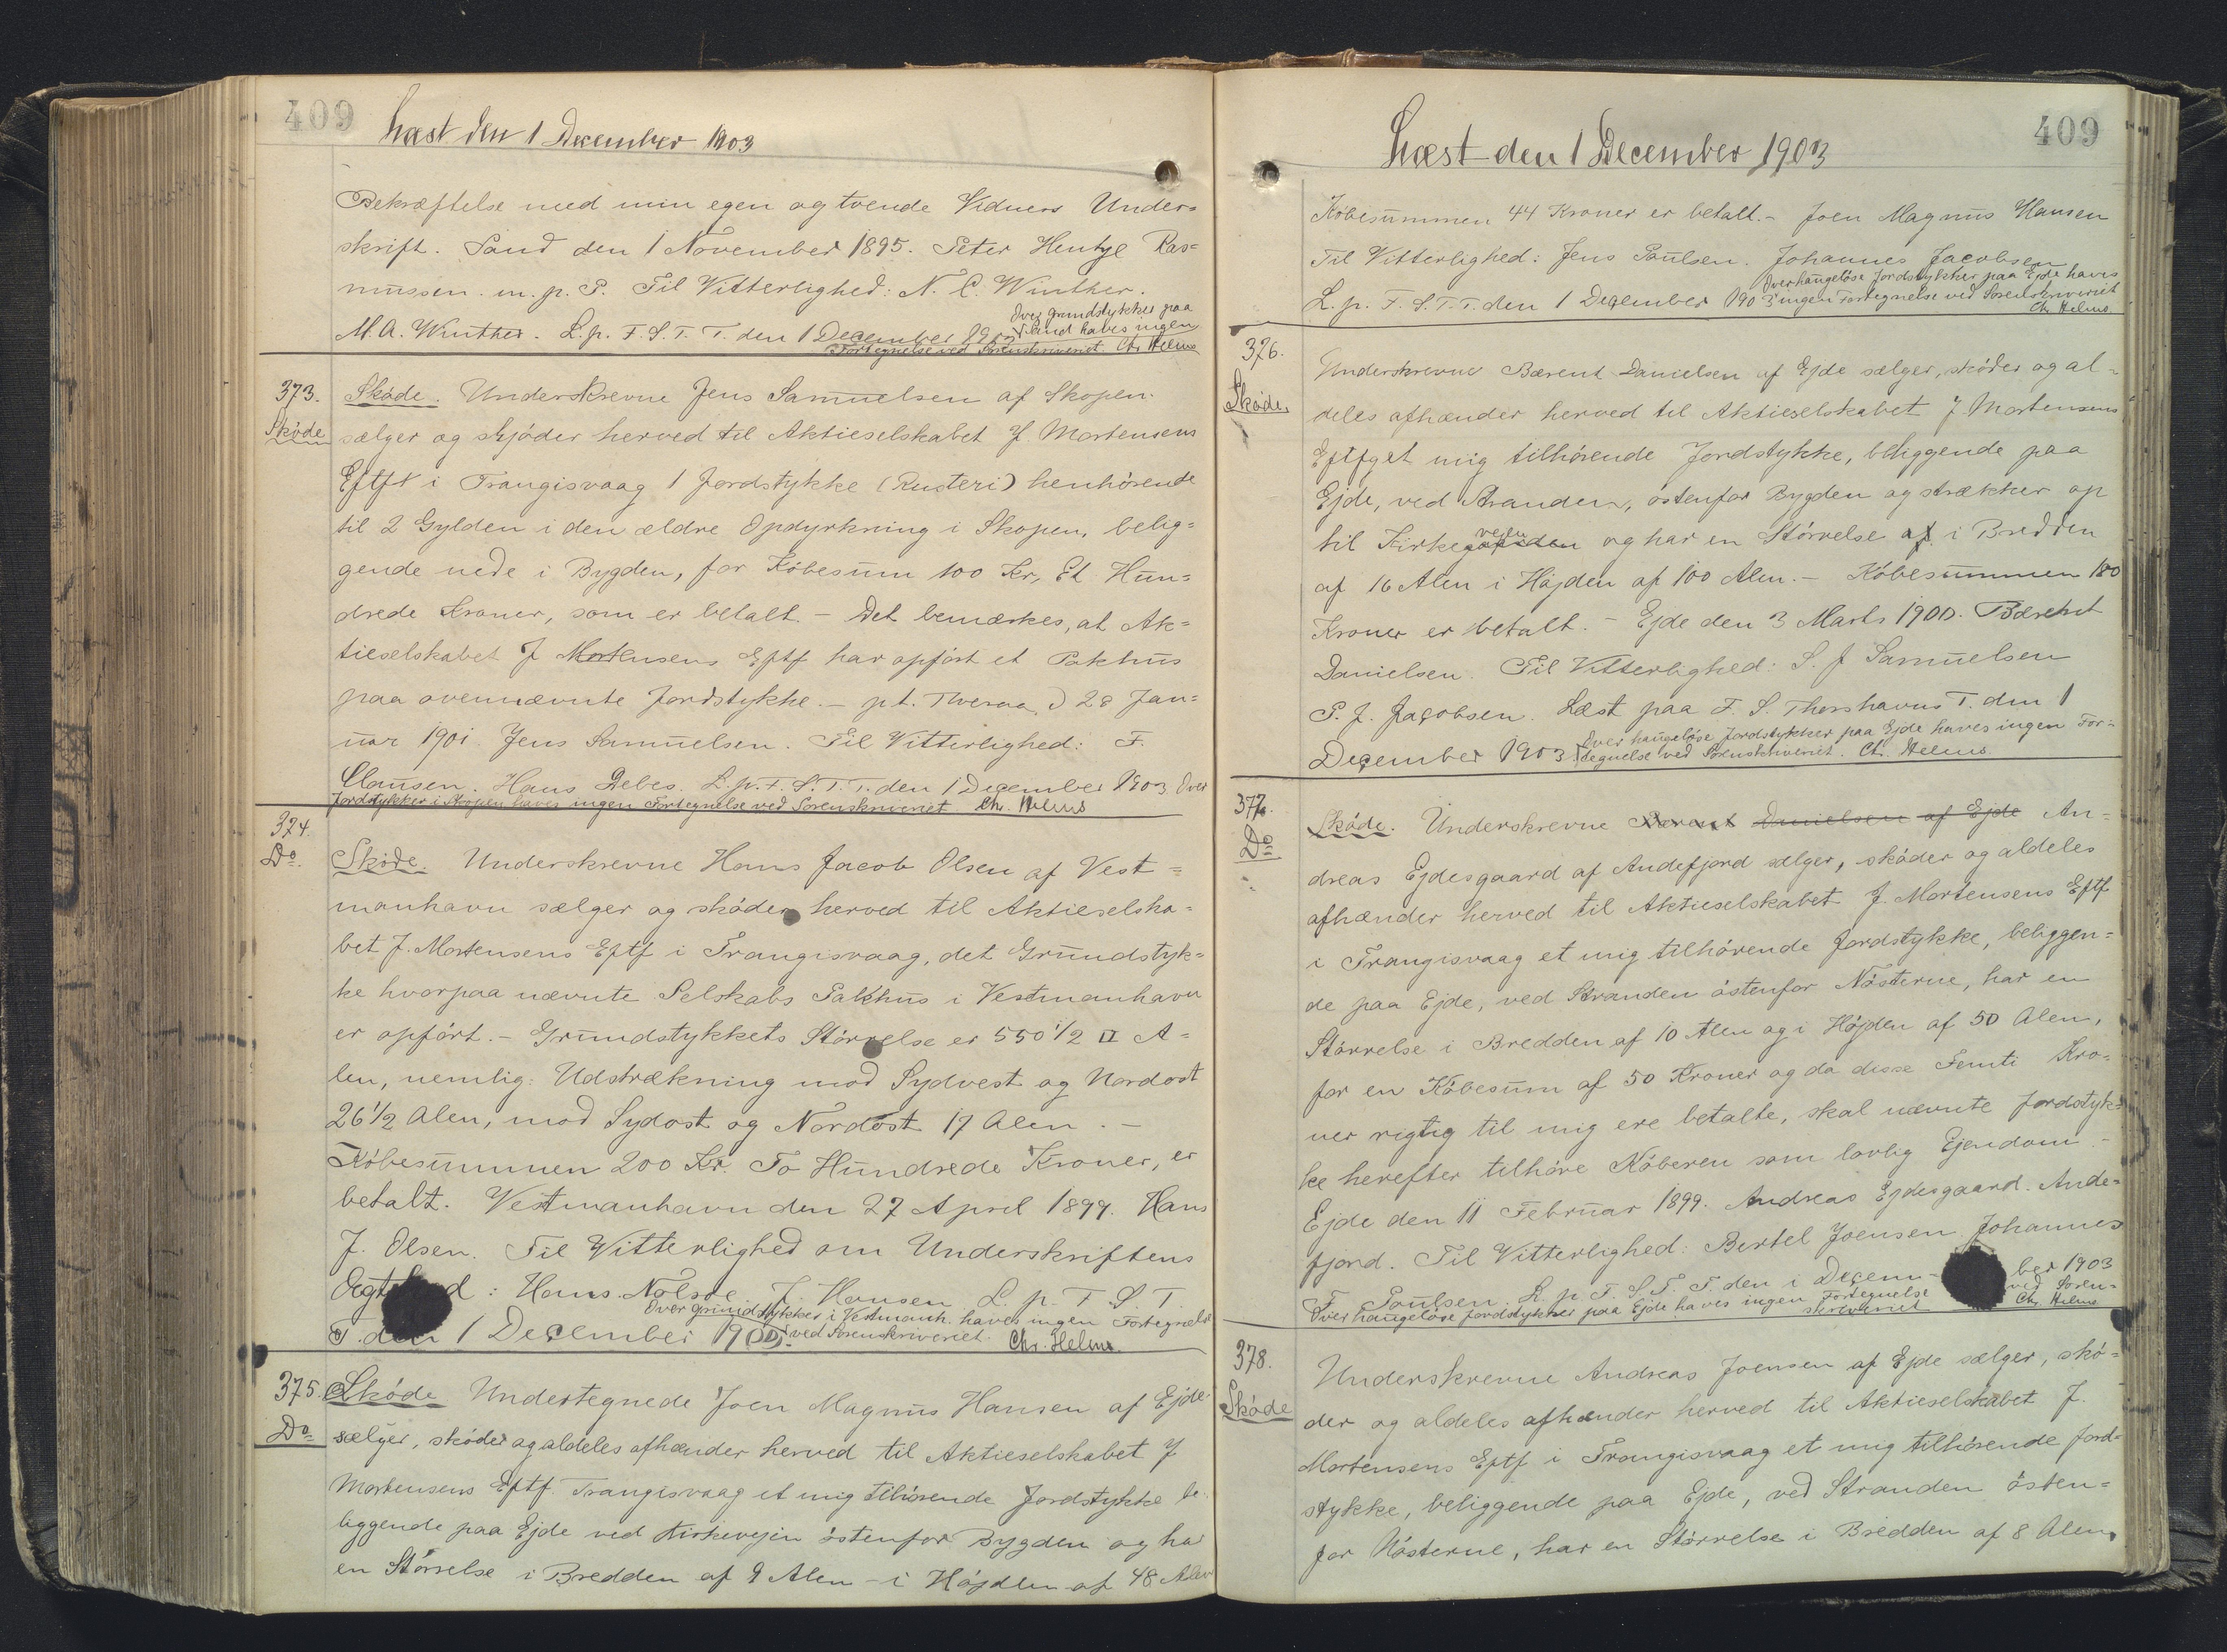 409
Læst den 1 December 1903
Bekræftelse med min egen og tvende Vidners Under=
skrift. Sand den 1 November 1895. Peter Hentze Ras=
mussen. m. p. P. Til Vitterlighed: N. C. Winther.
M. A. Winther. L. p. F. S. T. T. den 1 December 1903 Over grundstykker paa
Sand haves ingen
Fortegnelse ved Sorenskriveriet. Chr Helms
373.
Skøde
Skøde. Underskrevne Jens Samuelsen af Skopen.
sælger og skjøder herved til Aktieselskabet J. Mortensens
Eftf i Trangisvaag 1 Jordstykke (Rusteri) henhørende
til 2 Gylden i den ældre Opdyrkning i Skopen, belig=
gende nede i Bygden, for Købesum 100 Kr, Et Hun=
drede Kroner, som er betalt. – Det bemærkes, at Ak=
tieselskabet J Mortensens Eftf har opført et Pakhus
paa ovennævnte Jordstykke. – pt. Tveraa d 28 Jan=
uar 1901. Jens Samuelsen. Til Vitterlighed: F.
Clausen. Hans Debes. L. p. F. S. T. T. den 1 December 1903 Over
Jordstykker i Skopen haves ingen Fortegnelse ved Sorenskriveriet Chr. Helms
374.
Do.
Skøde. Underskrevne Hans Jacob Olsen af Vest=
manhavn sælger og skøder herved til Aktieselska=
bet J. Mortensens Eftf i Trangisvaag, det Grundstyk=
ke hvorpaa nævnte Selskabs Pakhus i Vestmanhavn
er opført. – Grundstykkets Størrelse er 550 1/2 □ A=
len, nemlig: Udstrækning mod Sydvest og Nordost
26 1/2 Alen, mod Sydost og Nordost 17 Alen. –
Købesummen 200 Kr. To Hundrede Kroner, er
betalt. Vestmanhavn den 27 April 1899. Hans
J. Olsen. Til Vitterlighed om Underskriftens
Ægt d: Hans Nolsøe J. Hansen L. p. F. S. T.
T. den 1 December 1903. Over grundstykker i Vestmanh. haves ingen Fortegnelse
ved Sorenskriveriet. Chr. Helms.
375.
Do
Skøde Undertegnede Joen Magnus Hansen af Ejde
sælger, skøder og aldeles afhænder herved til Aktieselskabet J
Mortensens Eftf. Trangisvaag et mig tilhørende Jordstykke be=
liggende paa Ejde ved Kirkevejen østenfor Bygden og ha
en Størrelse i Bredden af 9 Alen – i Højden af 48 Alen
409
Læst den 1 December 1903
Købesummen 44 Kroner er betalt. – Joen Magnus Hansen
Til Vitterlighed: Jens Paulsen. Johannes Jacobsen
L. p. F. S. T. T. den 1 December 1903 Over haugeløse Jordstykker paa Ejde haves
ingen Fortegnelse ved Sorenskriveriet
Chr Helms.
376.
Skøde.
Underskrevne Bærent Danielsen af Ejde sælger, skøder og al=
deles afhænder herved til Aktieselskabet J. Mortensens
Eftf et mig tilhørende Jordstykke, beliggende paa
Ejde, ved Stranden, østenfor Bygden og strækker op
til Kirkevejen og har en Størrelse af i Bredden
af 16 Alen i Højden af 100 Alen. – Købesummen 180
Kroner er betalt. – Ejde den 3 Marts 1900. Bærent
Danielsen. Til Vitterlighed: S. J Samuelsen
P. J. Jacobsen. Læst paa F. S. Thorshavns T. den 1
December 1903. Over haugeløse Jordstykker paa Ejde haves ingen For=
tegnelse ved Sorenskriveriet. Chr. Helms.
377.
Do
Skøde. Underskrevne Bærent Danielsen af Ejde An=
dreas Ejdesgaard af Andefjord sælger, skøder og aldeles
afhænder herved til Aktieselskabet J. Mortensens Eftf
i Trangisvaag et mig tilhørende Jordstykke, beliggen=
de paa Ejde, ved Stranden østenfor Nøsterne, har en
Størrelse i Bredden af 10 Alen og i Højden af 50 Alen,
for en Købesum af 50 Kroner og da disse Femti Kro=
ner rigtig til mig ere betalte, skal nævnte Jordstyk=
ke herefter tilhøre Køberen som lovlig Ejendom. –
Ejde den 11 Februar 1899. Andreas Ejdesgaard. Ande=
fjord. Til Vitterlighed: Bertel Joensen Johannes
F. Paulsen. L. p. F. S. T. T. den 1 Decem- ber 1903
Over haugeløse Jordstykker paa Ejde haves ingen Fortegnelse ved Soren=
skriveriet Chr. Helms
378.
Skøde
Underskrevne Andreas Joensen af Ejde sælger, skø=
der og aldeles afhænder herved til Aktieselskabet J.
Mortensens Eftf i Trangisvaag et mig tilhørende Jord=
stykke, beliggende paa Ejde, ved Stranden østen=
for Nøsterne, har en Størrelse i Bredden af 8 Alen,